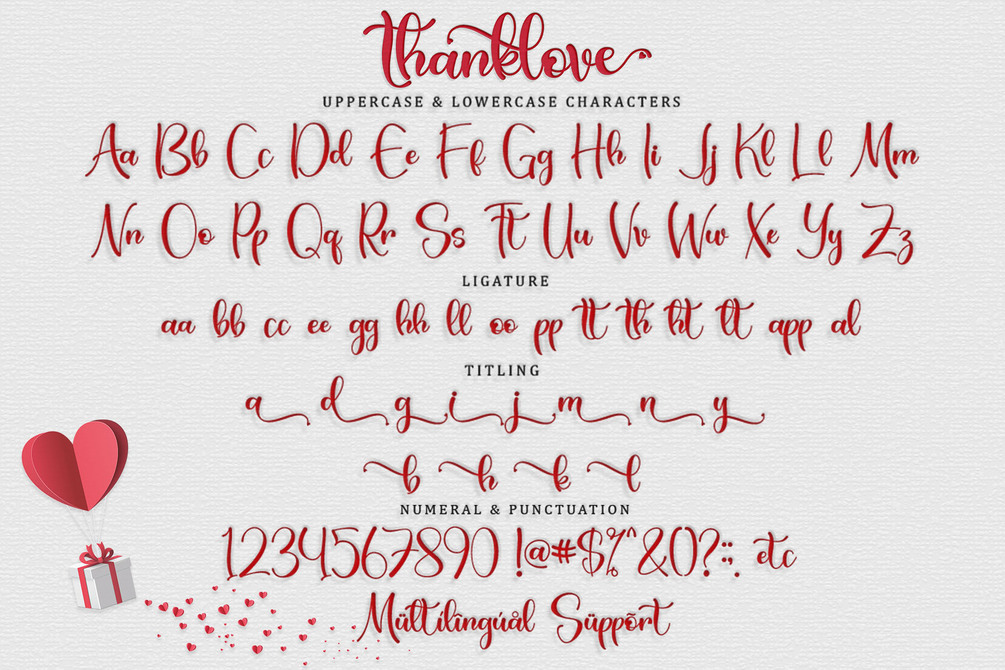 thanklove
UPPERCASE & LOWERCASE CHARACTERS
Aa Bb Cc Dd Ee Ff Gg Hh Ii Jj Kk Ll Mm
Nn Oo Pp Qq Rr Ss Tt Uu Vv Ww Xx Yy Zz
LIGATURE
aa bb cc ee gg hh ll oo pp tt th ht lt app al
TITLING
a d g i j m n y
b h k l
NUMERAL & PUNCTUATION
1234567890 !@#$%^&()?:;,. etc
Mültílîngúål Süppõrt